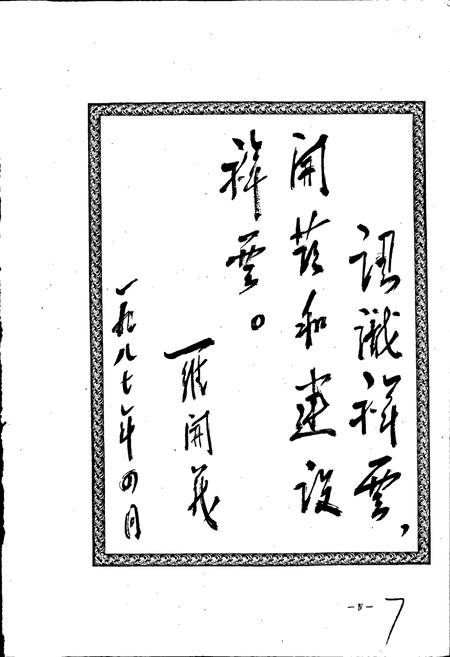 認識祥雲，
開發和建设
祥雲。
羅開義
一九八七年四月
— Ⅳ —
7